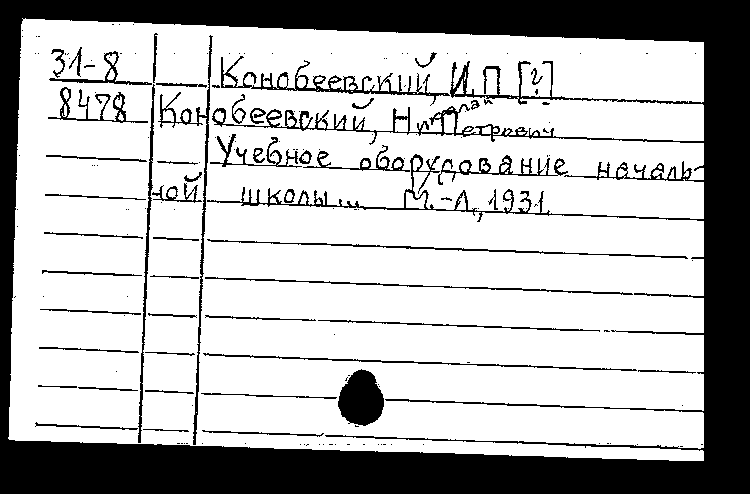 31-8 Конобеевский, И.П [?]
8478 Конобеевский, Николай Петрович
Учебное оборудование началь-
ной школы... М.-Л., 1931.